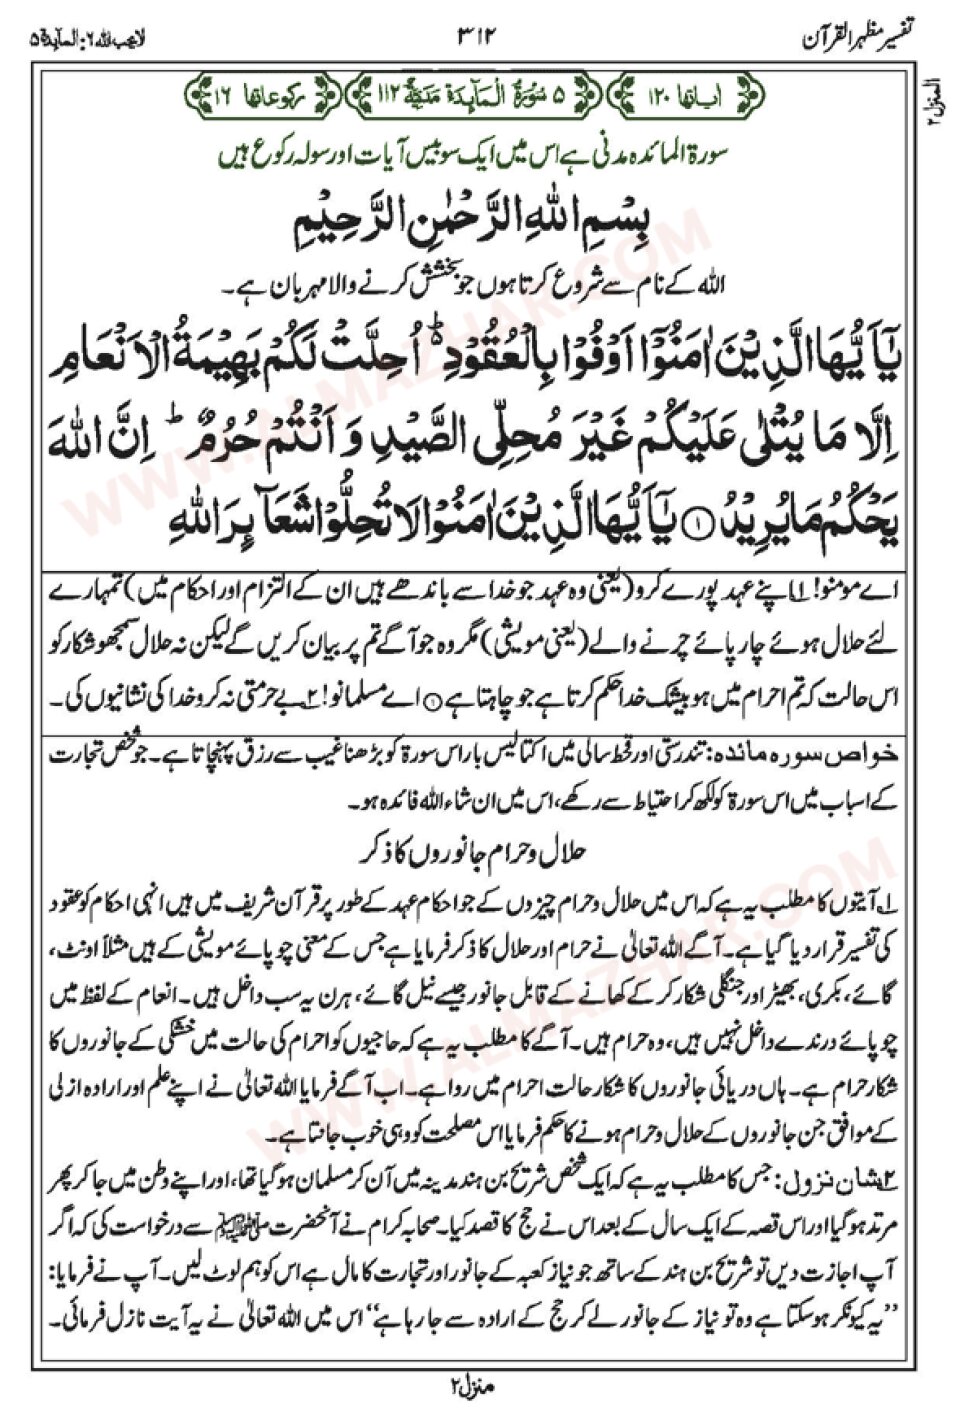 تفسیر مظہر القرآن
۳۱۲
لا یحب اللہ ۶: المآیدۃ ۵
المنزل ۲
اٰیاتھا ۱۲۰
۵ سُوْرَۃُ الْمَآیِٕدَۃِ مَدَنِیَّۃٌ ۱۱۲
رکوعاتھا ۱۶
سورۃ المائدہ مدنی ہے اس میں ایک سو بیس آیات اور سولہ رکوع ہیں
بِسْمِ اللهِ الرَّحْمٰنِ الرَّحِيْمِ
اللہ کے نام سے شروع کرتا ہوں جو بخشش کرنے والا مہربان ہے۔
يٰۤاَيُّهَا الَّذِيْنَ اٰمَنُوْۤا اَوْفُوْا بِالْعُقُوْدِ ؕ اُحِلَّتْ لَكُمْ بَهِيْمَةُ الْاَنْعَامِ
اِلَّا مَا يُتْلٰى عَلَيْكُمْ غَيْرَ مُحِلِّى الصَّيْدِ وَ اَنْتُمْ حُرُمٌ ؕ اِنَّ اللهَ
يَحْكُمُ مَا يُرِيْدُ ۝۱ يٰۤاَيُّهَا الَّذِيْنَ اٰمَنُوْا لَا تُحِلُّوْا شَعَآىِٕرَ اللهِ
اے مومنو! ۱ اپنے عہد پورے کرو (یعنی وہ عہد جو خدا سے باندھے ہیں ان کے التزام اور احکام میں) تمہارے
لئے حلال ہوئے چار پائے چرنے والے (یعنی مویشی) مگر وہ جو آگے تم پر بیان کریں گے لیکن نہ حلال سمجھو شکار کو
اس حالت کہ تم احرام میں ہو بیشک خدا حکم کرتا ہے جو چاہتا ہے ۝۱ اے مسلمانو! ۲ بے حرمتی نہ کرو خدا کی نشانیوں کی۔
خواص سورہ مائدہ: تندرستی اور قحط سالی میں اکتالیس بار اس سورۃ کو بڑھنا غیب سے رزق پہنچاتا ہے۔ جو شخص تجارت
کے اسباب میں اس سورۃ کو لکھ کر احتیاط سے رکھے، اس میں ان شاء اللہ فائدہ ہو۔
حلال و حرام جانوروں کا ذکر
۱ آیتوں کا مطلب یہ ہے کہ اس میں حلال و حرام چیزوں کے جو احکام عہد کے طور پر قرآن شریف میں ہیں انہی احکام کو عقود
کی تفسیر قرار دیا گیا ہے۔ آگے اللہ تعالیٰ نے حرام اور حلال کا ذکر فرمایا ہے جس کے معنی چوپائے مویشی کے ہیں مثلاً اونٹ،
گائے، بکری، بھیڑ اور جنگلی شکار کر کے کھانے کے قابل جانور جیسے نیل گائے، ہرن یہ سب داخل ہیں۔ انعام کے لفظ میں
چوپائے درندے داخل نہیں ہیں، وہ حرام ہیں۔ آگے کا مطلب یہ ہے کہ حاجیوں کو احرام کی حالت میں خشکی کے جانوروں کا
شکار حرام ہے۔ ہاں دریائی جانوروں کا شکار حالت احرام میں روا ہے۔ اب آگے فرمایا اللہ تعالیٰ نے اپنے علم اور ارادہ ازلی
کے موافق جن جانوروں کے حلال و حرام ہونے کا حکم فرمایا اس مصلحت کو وہی خوب جانتا ہے۔
۲ شان نزول: جس کا مطلب یہ ہے کہ ایک شخص شریح بن ہند مدینہ میں آن کر مسلمان ہو گیا تھا، اور اپنے وطن میں جا کر پھر
مرتد ہو گیا اور اس قصہ کے ایک سال کے بعد اس نے حج کا قصد کیا۔ صحابہ کرام نے آنحضرت ﷺ سے درخواست کی کہ اگر
آپ اجازت دیں تو شریح بن ہند کے ساتھ جو نیاز کعبہ کے جانور اور تجارت کا مال ہے اس کو ہم لوٹ لیں۔ آپ نے فرمایا:
”یہ کیونکر ہو سکتا ہے وہ تو نیاز کے جانور لے کر حج کے ارادہ سے جا رہا ہے“ اس میں اللہ تعالیٰ نے یہ آیت نازل فرمائی۔
منزل ۲
WWW.ALMAZHAR.COM
WWW.ALMAZHAR.COM